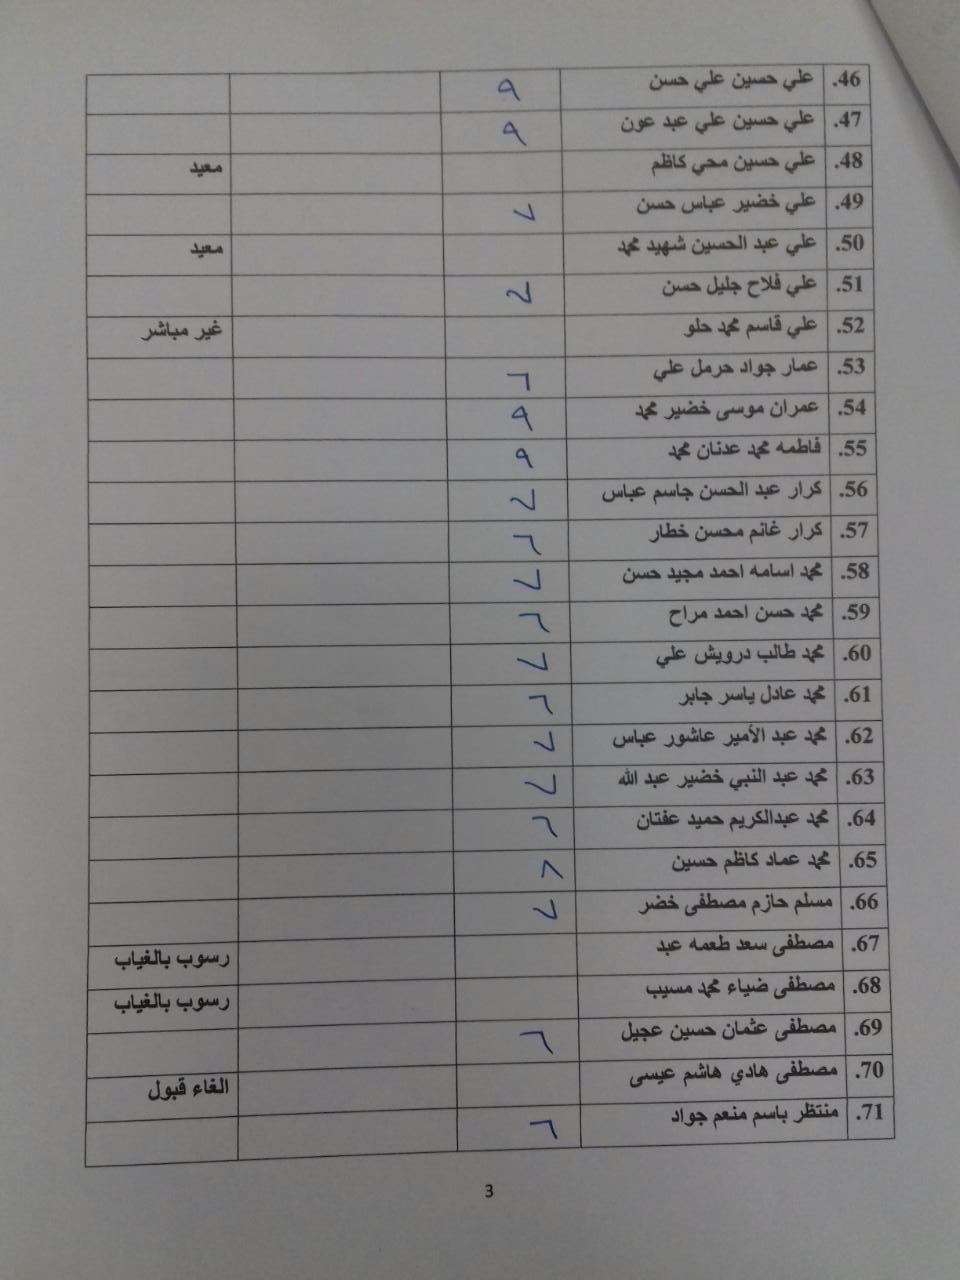 46. علي حسين علي حسن ٩
47. علي حسين علي عبد عون ٩
48. علي حسين محي كاظم معيد
49. علي خضير عباس حسن ٧
50. علي عبد الحسين شهيد محمد معيد
51. علي فلاح جليل حسن ٧
52. علي قاسم محمد حلو غير مباشر
53. عمار جواد حرمل علي ٦
54. عمران موسى خضير محمد ٩
55. فاطمه محمد عدنان محمد ٩
56. كرار عبد الحسن جاسم عباس ٧
57. كرار غانم محسن خطار ٦
58. محمد اسامه احمد مجيد حسن ٧
59. محمد حسن احمد مراح ٦
60. محمد طالب درويش علي ٧
61. محمد عادل ياسر جابر ٦
62. محمد عبد الأمير عاشور عباس ٧
63. محمد عبد النبي خضير عبد الله ٧
64. محمد عبدالكريم حميد عفتان ٦
65. محمد عماد كاظم حسين ٨
66. مسلم حازم مصطفى خضر ٧
67. مصطفى سعد طعمه عبد رسوب بالغياب
68. مصطفى ضياء محمد مسيب رسوب بالغياب
69. مصطفى عثمان حسين عجيل ٦
70. مصطفى هادي هاشم عيسى الغاء قبول
71. منتظر باسم منعم جواد ٦
3